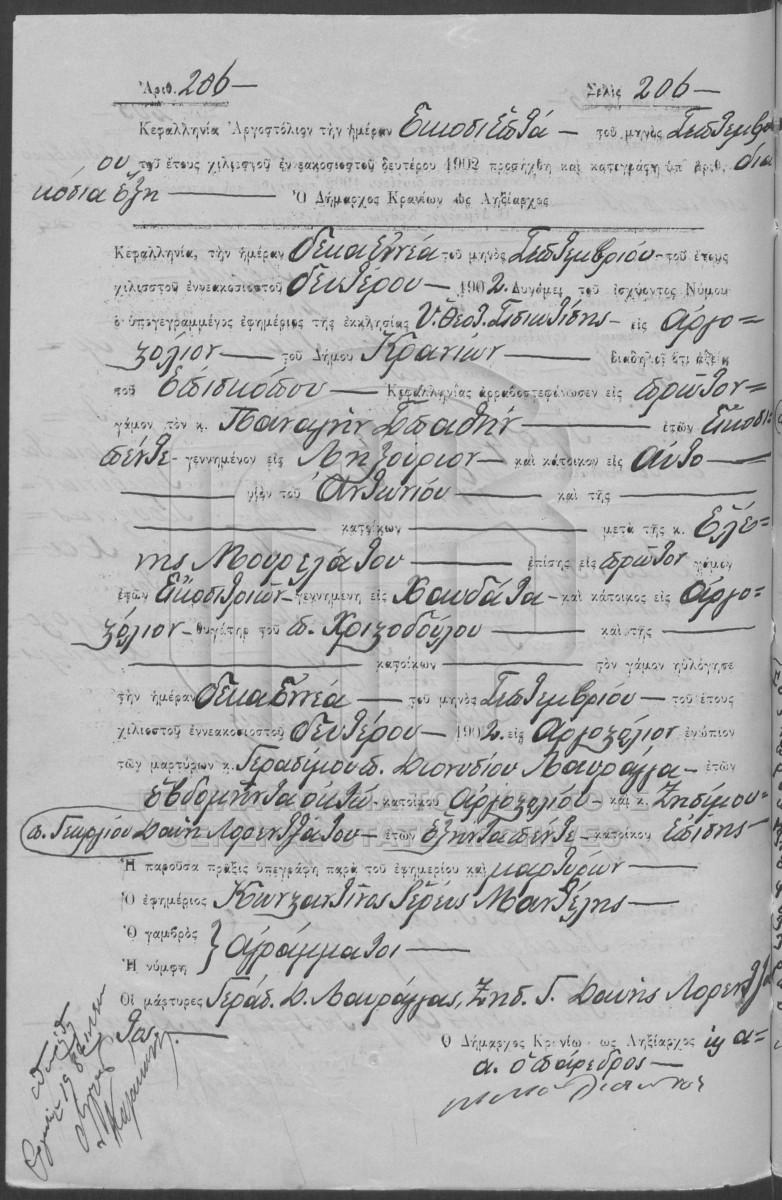 Ἀριθ. 206 — Σελὶς 206 —
Κεφαλληνία Ἀργοστόλιον τὴν ἡμέραν Εἰκοσιεπτά — τοῦ μηνὸς Σεπτεμβρί
ου τοῦ ἔτους χιλιοστοῦ ἐννεακοσιοστοῦ δευτέρου 1902 προσήχθη καὶ κατεγράφη ὑπ' ἀριθ. δια
κόσια ἕξη — Ὁ Δήμαρχος Κρανίων ὡς Ληξίαρχος
Κεφαλληνία, τὴν ἡμέραν δεκαεννέα τοῦ μηνὸς Σεπτεμβρίου — τοῦ ἔτους
χιλιοστοῦ ἐννεακοσιοστοῦ δευτέρου — 1902. Δυνάμει τοῦ ἰσχύοντος Νόμου
ὁ ὑπογεγραμμένος ἐφημέριος τῆς ἐκκλησίας Ὑ. Θεοτ. Σισιωτίσης — εἰς Ἀργο=
στόλιον — τοῦ Δήμου Κρανίων — διαδηλοῖ ὅτι ἀδείᾳ
τοῦ Ἐπισκόπου — Κεφαλληνίας ἀρραβοστεφάνωσεν εἰς πρῶτον=
γάμον τὸν κ. Παναγὴν Σπαθήν — ἐτῶν εἴκοσι=
πέντε — γεννημένον εἰς Ληξούριον — καὶ κάτοικον εἰς αὐτὸ —
— υἱὸν τοῦ Ἀντωνίου — καὶ τῆς —
— κατοίκων — μετὰ τῆς κ. Ἑλέ=
νης Μουρελάτου — ἐπίσης εἰς πρῶτον γάμον
ἐτῶν εἰκοσιτριῶν — γεννημένη εἰς Χαυδάτα — καὶ κάτοικος εἰς Ἀργο=
στόλιον — θυγάτηρ τοῦ π. Χριστοδούλου — καὶ τῆς —
— κατοίκων — τὸν γάμον ηὐλόγησε
τὴν ἡμέραν δεκαεννέα — τοῦ μηνὸς Σεπτεμβρίου — τοῦ ἔτους
χιλιοστοῦ ἐννεακοσιοστοῦ δευτέρου — 1902. εἰς Ἀργοστόλιον ἐνώπιον
τῶν μαρτύρων κ. Γερασίμου π. Διονυσίου Λαυράγγα — ἐτῶν
ἑβδομήντα ὀκτώ — κατοίκου Ἀργοστολίου — καὶ κ. Ζησίμου=
π. Γεωργίου Δαυῆ Λορεντζάτου — ἐτῶν ἑξῆντα πέντε — κατοίκου ἐπίσης —
Ἡ παροῦσα πρᾶξις ὑπεγράφη παρὰ τοῦ ἐφημερίου καὶ μαρτύρων —
Ὁ ἐφημέριος Κωνσταντῖνος Ἱερεὺς Μαντέλης —
Ὁ γαμβρὸς
Ἡ νύμφη } ἀγράμματοι —
Οἱ μάρτυρες Γεράσ. Δ. Λαυράγγας, Ζησ. Γ. Δαυῆς Λορεντζά
τος. —
Ὁ Δήμαρχος Κρανίων ὡς Ληξίαρχος κ. α=
α. ὁ πάρεδρος —